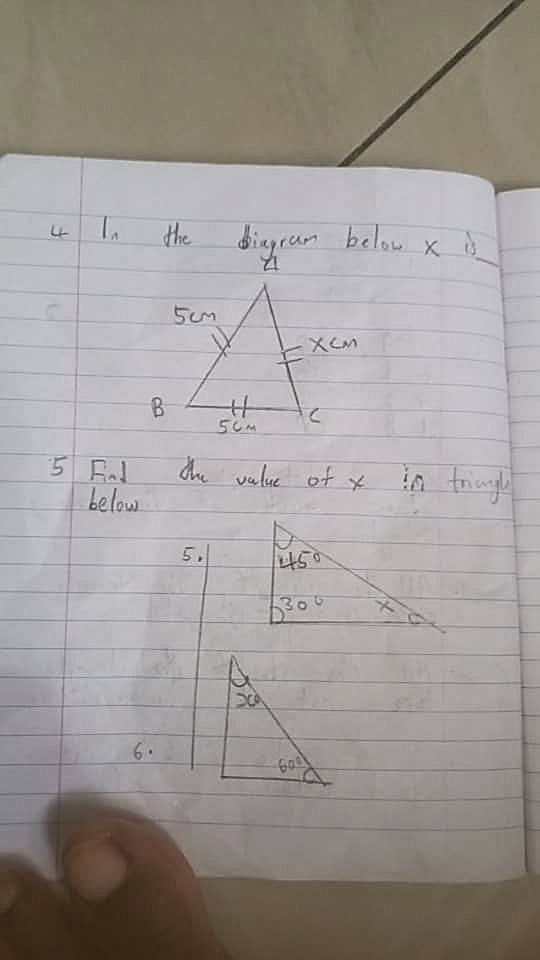 4 In the diagram below x is __
A
5cm
x cm
B
C
5cm
5 Find the value of x in triangle
below
5.
45°
30°
x
60°
6.